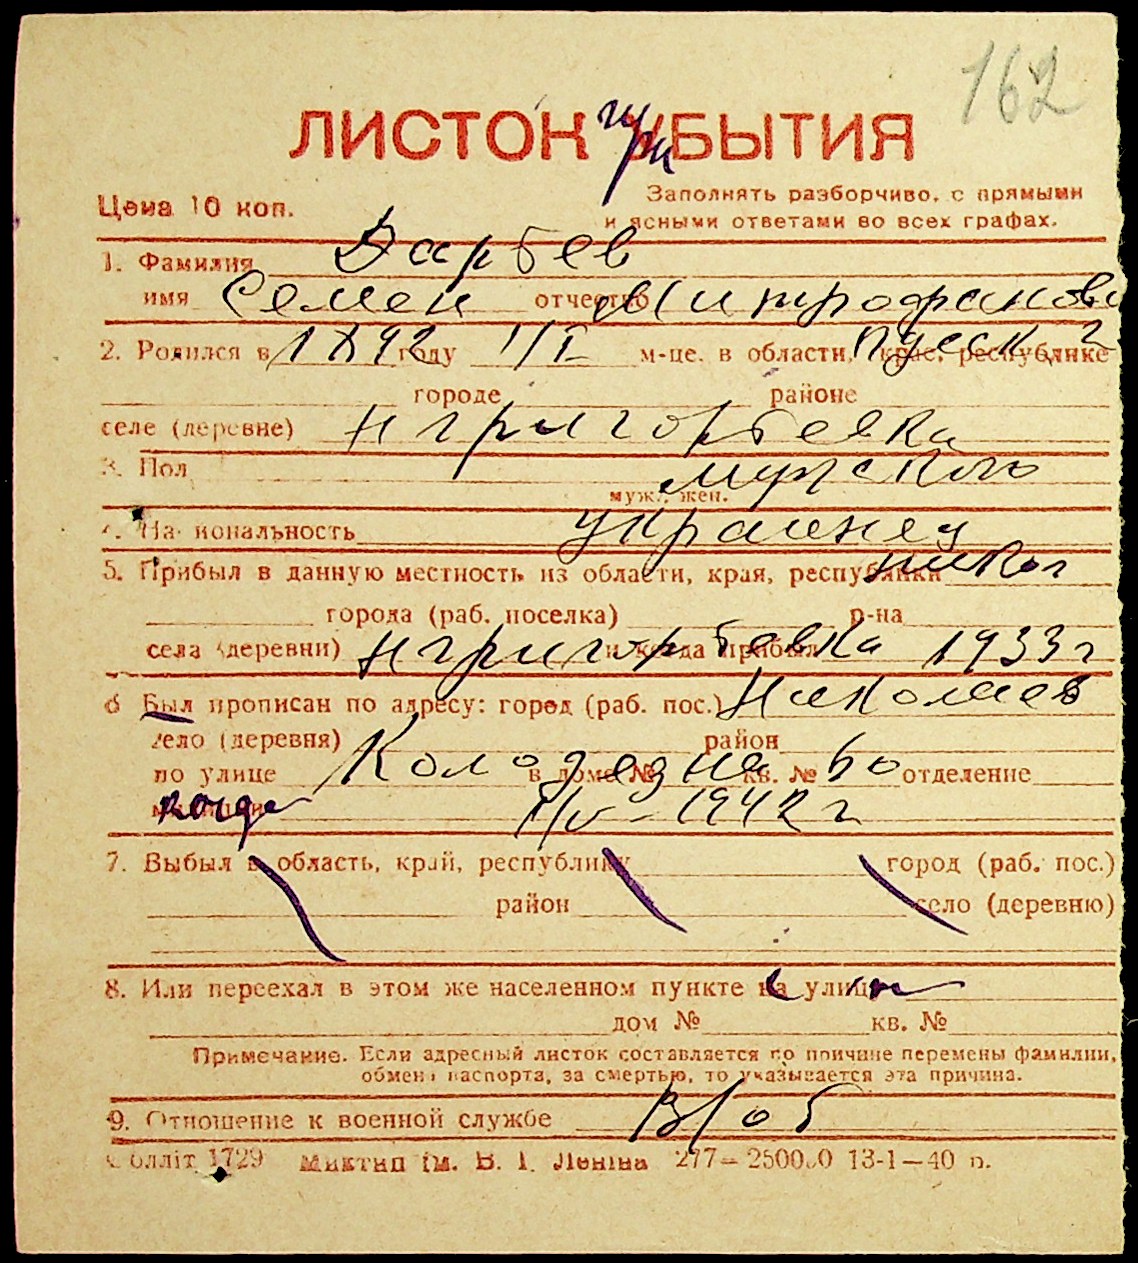 162
ЛИСТОК при УБЫТИЯ
Цена 10 коп.
Заполнять разборчиво, с прямыми
и ясными ответами во всех графах.
1. Фамилия Дарбев
имя Семен отчество Митрофанови
2. Родился в 1892 году 1/I м-це. в области, крае, республике Одеск
городе районе
селе (деревне) Нгригорбевка
3. Пол мужского
муж., жен.
4. Национальность украенец
5. Прибыл в данную местность из области, края, республики никол
города (раб. поселка) р-на
села (деревни) Нгригорбевка и когда прибыл 1933 г
6 Был прописан по адресу: город (раб. пос.) Николаев
село (деревня) район
по улице Колодезна в доме № кв. № 60 отделение
милиции когда 1/V - 1942 г
7. Выбыл в область, край, республику город (раб. пос.)
район село (деревню)
8. Или переехал в этом же населенном пункте на улицу
дом № кв. №
Примечание. Если адресный листок составляется по причине перемены фамилии,
обмена паспорта, за смертью, то указывается эта причина.
9. Отношение к военной службе В/об
Облліт 1729 Миктип ім. В. І. Леніна 277—250000 13-1—40 р.